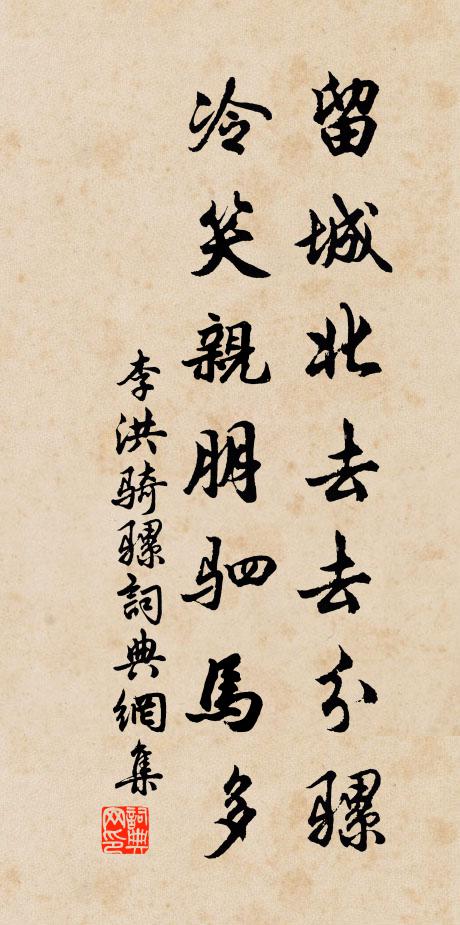 留城北去去分骡
冷笑親朋駟馬多
李洪骑骡詞典網集
詞典网印